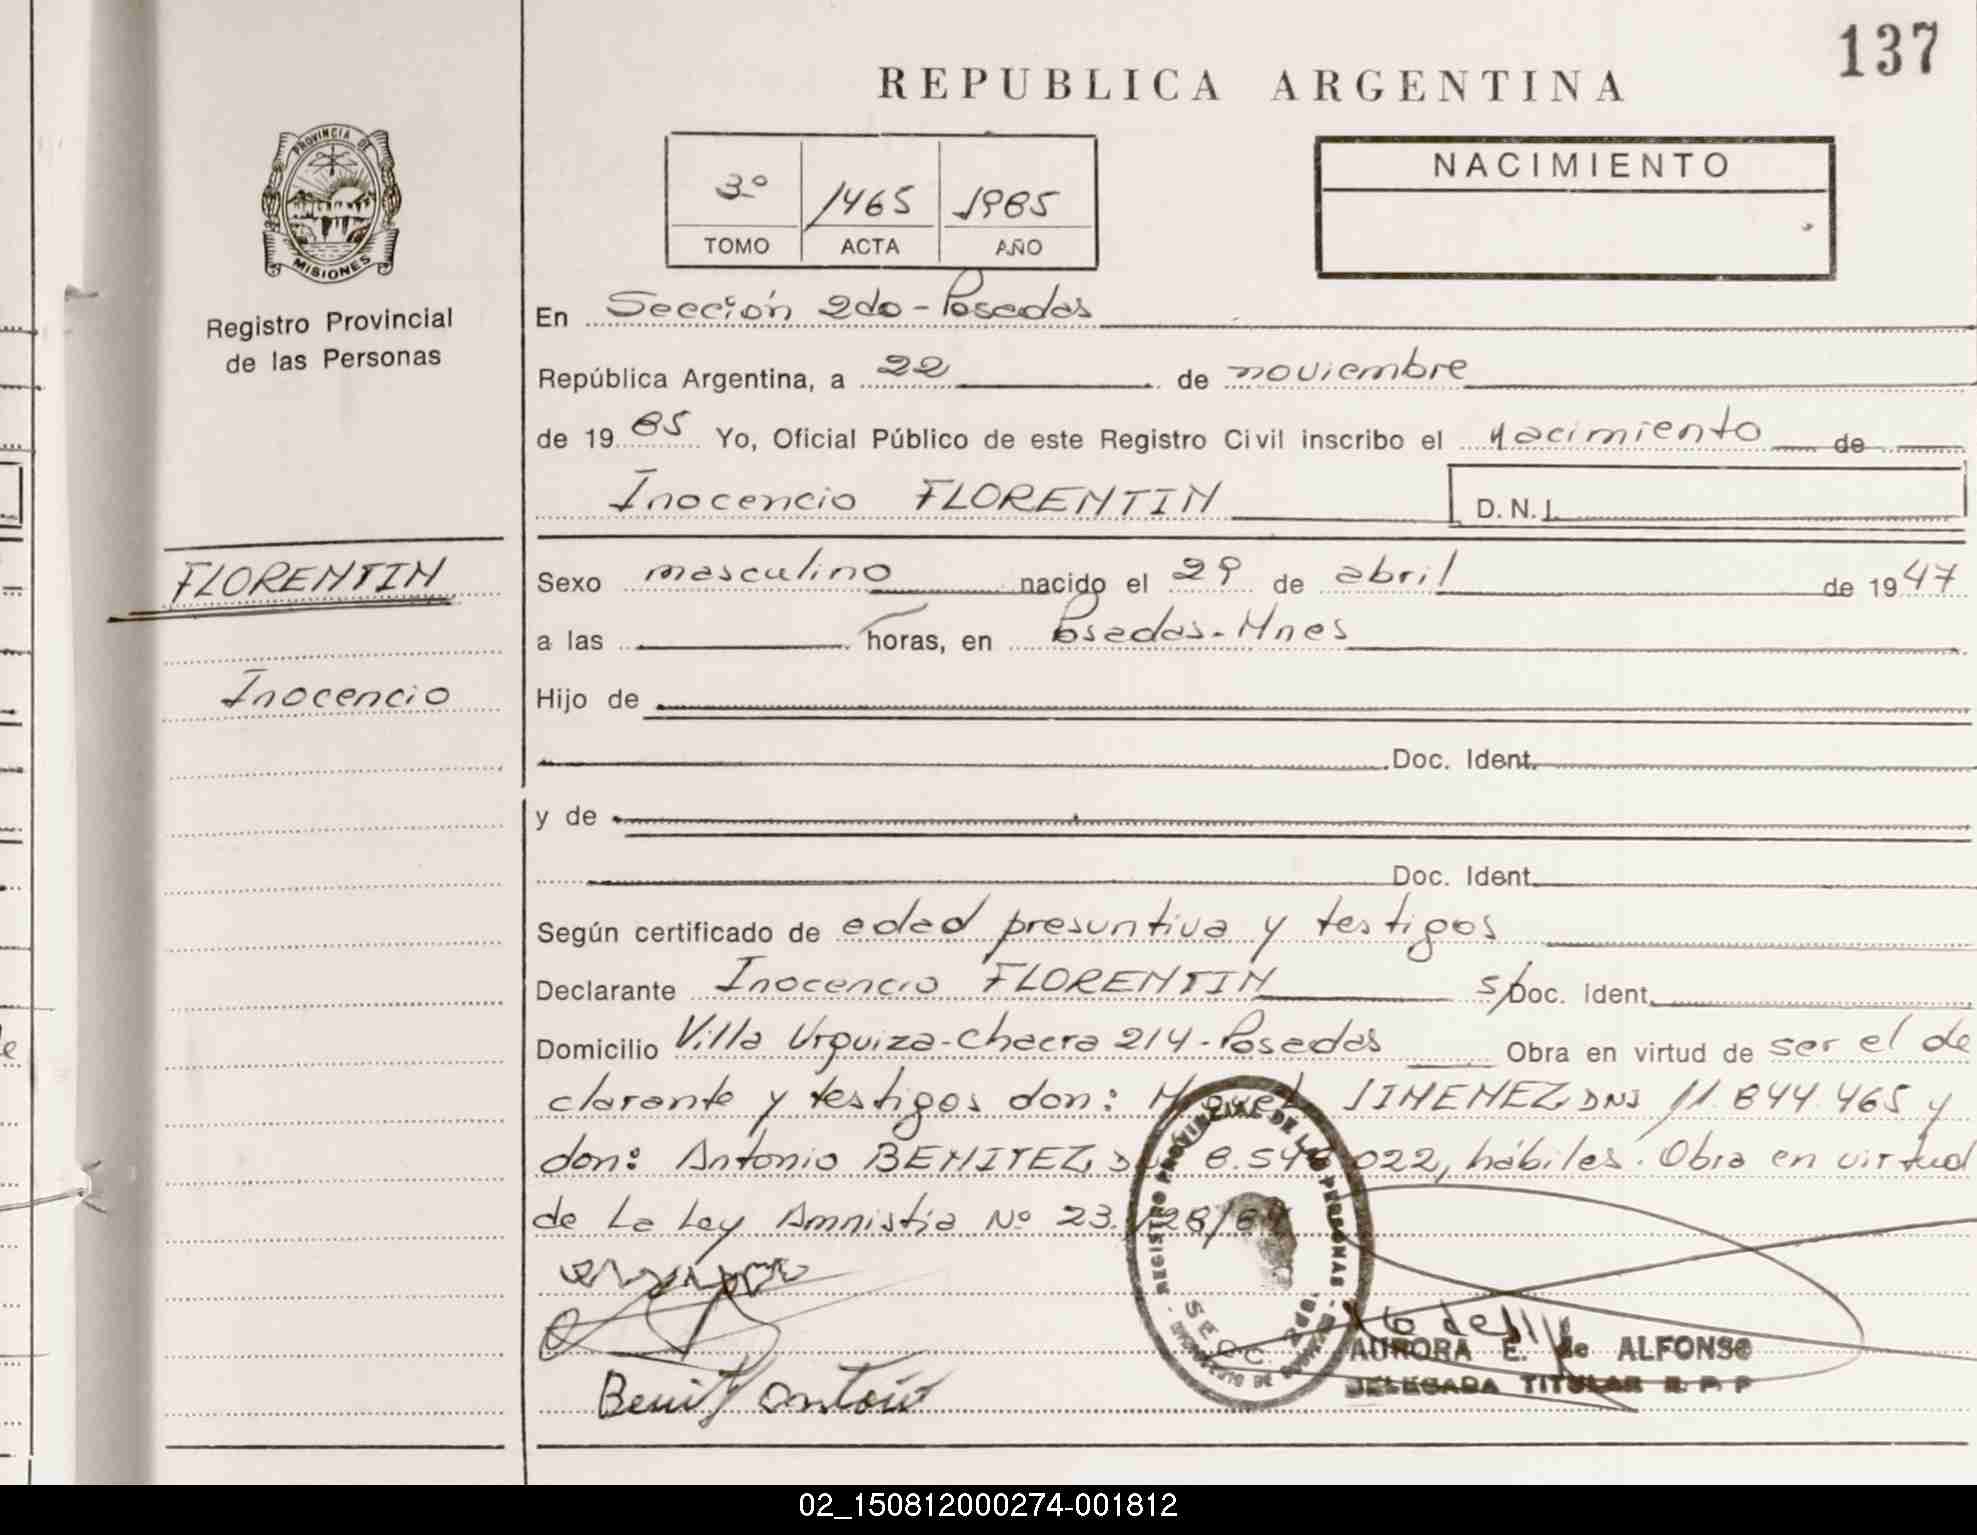 137
REPUBLICA ARGENTINA
PROVINCIA DE
MISIONES
Registro Provincial
de las Personas
3º 1465 1985
TOMO ACTA AÑO
NACIMIENTO
En Sección 2do - Posadas
República Argentina, a 22 de noviembre
de 19 85 Yo, Oficial Público de este Registro Civil inscribo el nacimiento de
Inocencio FLORENTIN D. N. I.
FLORENTIN
Inocencio
Sexo masculino nacido el 29 de abril de 19 47
a las horas, en Posadas - Mnes
Hijo de
Doc. Ident.
y de
Doc. Ident.
Según certificado de edad presuntiva y testigos
Declarante Inocencio FLORENTIN s/Doc. Ident.
Domicilio Villa Urquiza - Chacra 214 - Posadas Obra en virtud de ser el de
clarante y testigos don: JIMENEZ DNI 11.844.465 y
don: Antonio BENITEZ, 022, hábiles. Obra en virtud
de La Ley Amnistía Nº 23.
REGISTRO PROVINCIAL DE LAS PERSONAS
SECC
Benit antoio
AURORA E. de ALFONSO
DELEGADA TITULAR R. P. P
02_150812000274-001812